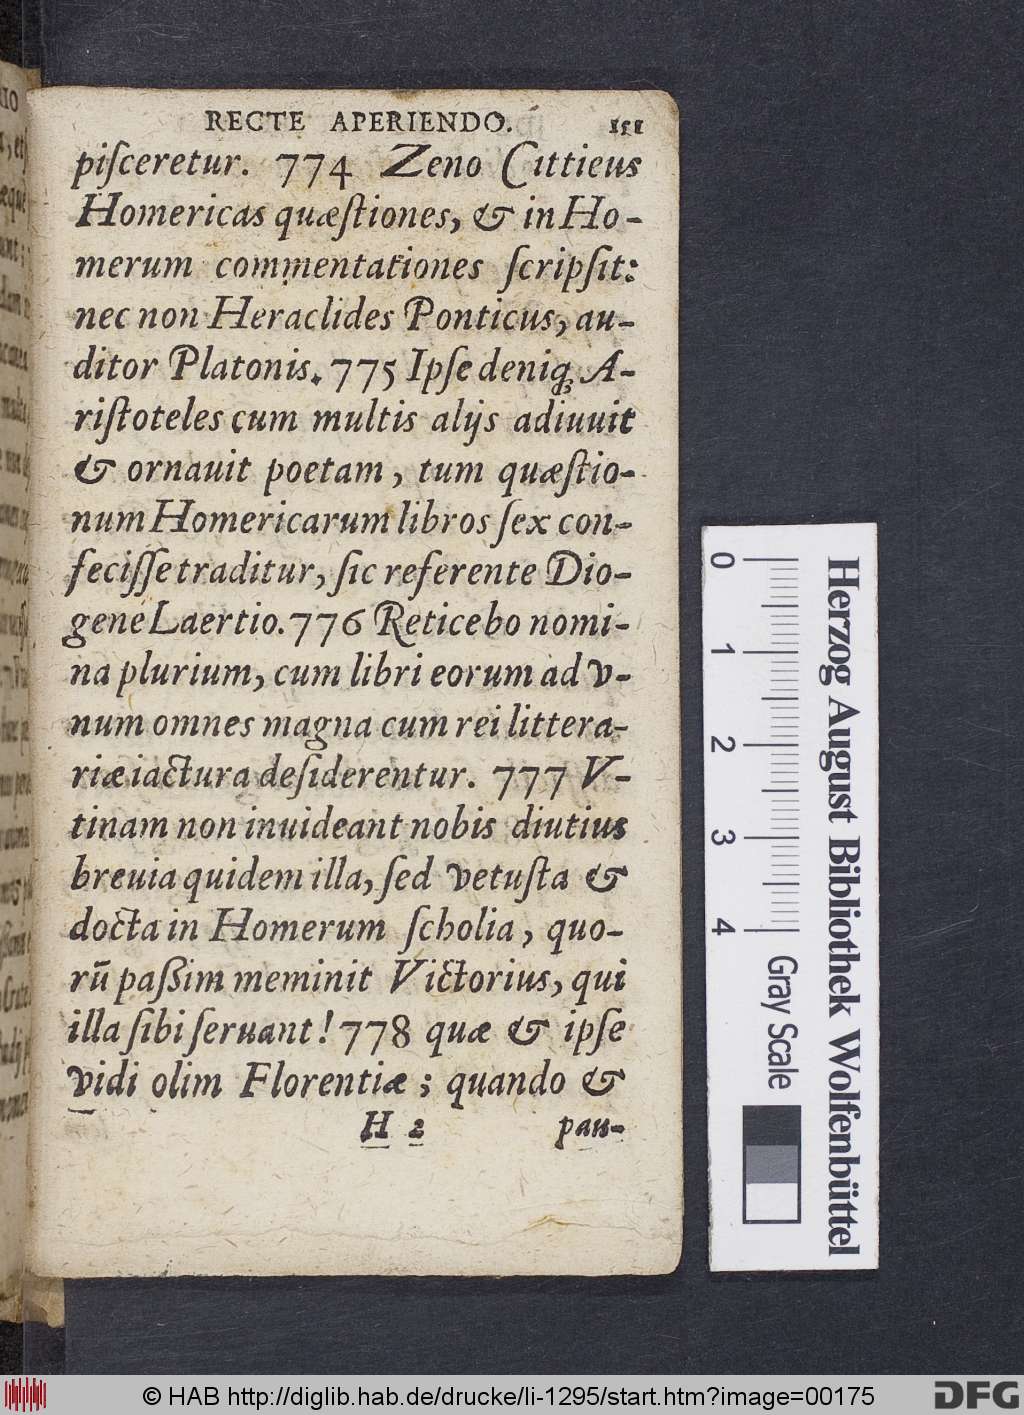 RECTE APERIENDO. 111
piſceretur. 774 Zeno Cittieus
Homericas quæſtiones, & in Ho-
merum commentationes ſcripſit:
nec non Heraclides Ponticus, au-
ditor Platonis. 775 Ipſe deniq; A-
riſtoteles cum multis alijs adiuuit
& ornauit poetam, tum quæſtio-
num Homericarum libros ſex con-
feciſſe traditur, ſic referente Dio-
gene Laertio. 776 Reticebo nomi-
na plurium, cum libri eorum ad v-
num omnes magna cum rei littera-
riæ iactura deſiderentur. 777 V-
tinam non inuideant nobis diutius
breuia quidem illa, ſed vetuſta &
docta in Homerum ſcholia, quo-
rū paßim meminit Victorius, qui
illa ſibi ſeruant! 778 quæ & ipſe
vidi olim Florentiæ; quando &
H 2 pau-
0 1 2 3 4 Gray Scale
Herzog August Bibliothek Wolfenbüttel
© HAB http://diglib.hab.de/drucke/li-1295/start.htm?image=00175
DFG